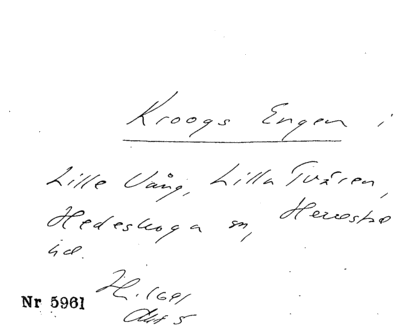 Kroogs Engen i
Lille Vång, Lilla Tvären,
Hedeskoga sn, Herrestad
hd.
H. 1691
Nr 5961
Akt 5